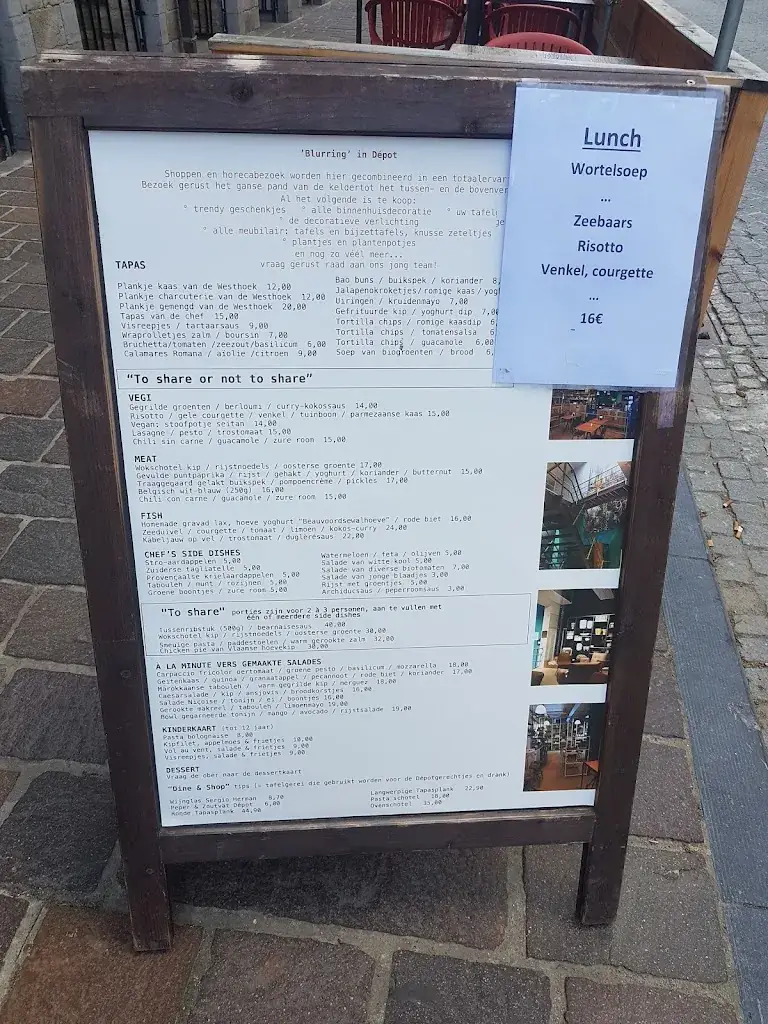 'Blurring' in Dépot
Shoppen en horecabezoek worden hier gecombineerd in een
Bezoek gerust het ganse pand van de keldertot het tussen- en de
Al het volgende is te koop:
° trendy geschenkjes ° alle binnenhuisdecoratie ° uw
° de decoratieve verlichting
° alle meubilair: tafels en bijzettafels, knusse zeteltjes
° plantjes en plantenpotjes
en nog zo véél meer...
vraag gerust raad aan ons jong team!
TAPAS
Plankje kaas van de Westhoek 12,00
Plankje charcuterie van de Westhoek 12,00
Plankje gemengd van de Westhoek 20,00
Tapas van de chef 15,00
Visreepjes / tartaarsaus 9,00
Wraprolletjes zalm / boursin 7,00
Bruchetta/tomaten /zeezout/basilicum 6,00
Calamares Romana / aïolie /citroen 9,00
Bao buns / buikspek / koriander
Jalapenokroketjes/romige kaas
Uiringen / kruidenmayo 7,00
Gefrituurde kip / yoghurt dip
Tortilla chips / romige kaasdip
Tortilla chips / tomatensalsa
Tortilla chips / guacamole 6,00
Soep van biogroenten / brood
"To share or not to share"
VEGI
Gegrilde groenten / berloumi / curry-kokossaus 14,00
Risotto / gele courgette / venkel / tuinboon / parmezaanse kaas 15,00
Vegan: stoofpotje seitan 14,00
Lasagne / pesto / trostomaat 15,00
Chili sin carne / guacamole / zure room 15,00
MEAT
Wokschotel kip / rijstnoedels / oosterse groente 17,00
Gevulde puntpaprika / rijst / gehakt / yoghurt / koriander / butternut 15,00
Traaggegaard gelakt buikspek / pompoencrème / pickles 17,00
Belgisch wit-blauw (250g) 16,00
Chili con carne / guacamole / zure room 15,00
FISH
Homemade gravad lax, hoeve yoghurt "Beauvoordsewalhoeve" / rode biet 16,00
Zeeduivel / courgette / tomaat / limoen / kokos-curry 24,00
Kabeljauw op vel / trostomaat / dugléresaus 22,00
CHEF'S SIDE DISHES
Stro-aardappelen 5,00
Zuiderse tagliatelle 5,00
Provençaalse krielaardappelen 5,00
Taboulen / munt / rozijnen 5,00
Groene boontjes / zure room 5,00
Watermeloen / feta / olijven 5,00
Salade van witte kool 5,00
Salade van diverse biotomaten 7,00
Salade van jonge blaadjes 3,00
Rijst met groentjes 5,00
Archiducsaus / peperroomsaus 3,00
"To share" porties zijn voor 2 à 3 personen, aan te vullen met
één of meerdere side dishes
Tussenribstuk (500g) / bearnaisesaus 40,00
Wokschotel kip / rijstnoedels / oosterse groente 30,00
Smeuïge pasta / paddestoelen / warm gerookte zalm 32,00
Chicken pie van Vlaamse hoevekip 30,00
A LA MINUTE VERS GEMAAKTE SALADES
Carpaccio Tricolor oertomaat / groene pesto / basilicum / mozzarella 18,00
Geitenkaas / quinoa / granaatappel / pecannoot / rode biet / koriander 17,00
Marokkaanse tabouleh / warm gegrilde kip / merguez 18,00
Caesarsalade / kip / ansjovis / broodkorstjes 16,00
Salade Niçoise / tonijn / ei / boontjes 16,00
Gerookte makreel / tabouleh / limoenmayo 19,00
Bowl gegarneerde tonijn / mango / avocado / rijstsalade 19,00
KINDERKAART (tot 12 jaar)
Pasta bolognaise 8,00
Kipfilet, appelmoes & frietjes 10,00
Vol au vent, salade & frietjes 9,00
Visreepjes, salade & frietjes 9,00
DESSERT
Vraag de ober naar de dessertkaart
"Dine & Shop" tips (= tafelgerei die gebruikt worden voor de Dépotgerechtjes en drank)
Wijnglas Sergio Herman 8,70
Peper & Zoutvat Dépot 6,00
Ronde Tapasplank 44,90
Langwerpige Tapasplank 22,90
Pasta schotel 10,00
Ovenschotel 35,00
Lunch
Wortelsoep
...
Zeebaars
Risotto
Venkel, courgette
...
16€